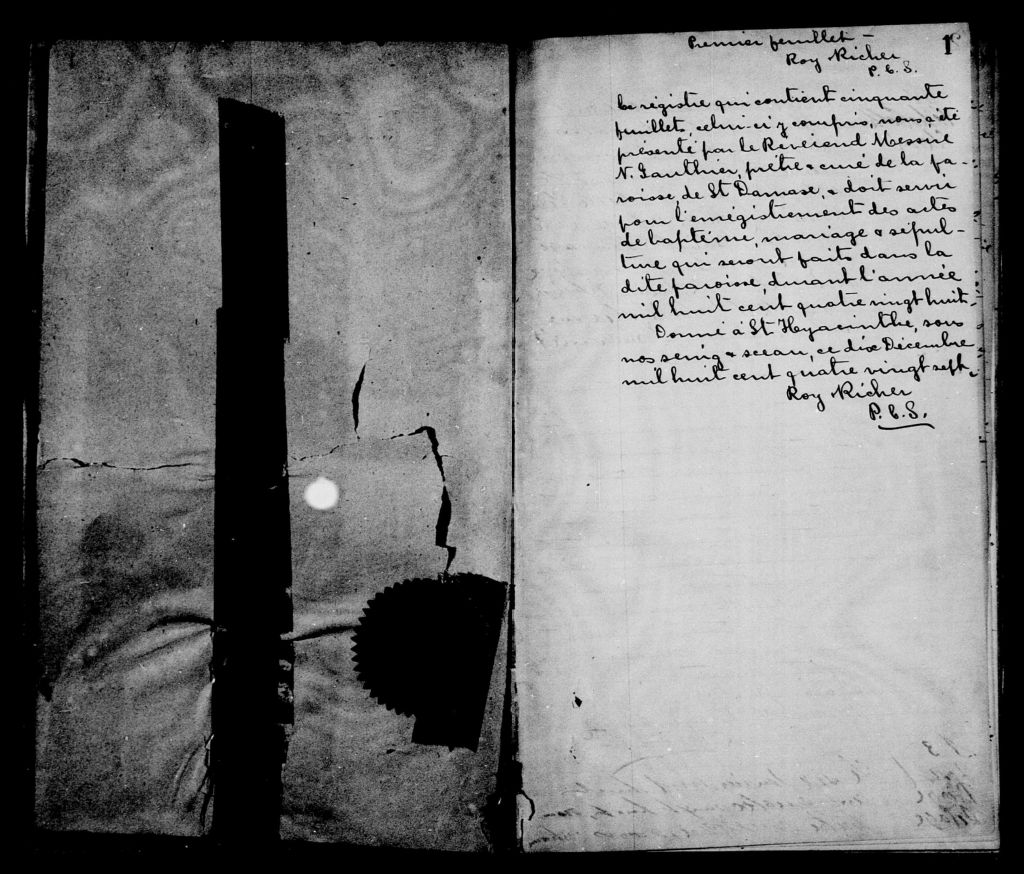 Premier feuillet –
Roy Richer
P.C.S.
1
Ce régistre qui contient cinquante
feuillets, celui-ci y compris, nous a été
présenté par le Révérend Messire
N. Gauthier, prêtre & curé de la pa-
roisse, de St Damase, & doit servir
pour l'enrégistrement des actes
de baptême, mariage & sépul-
ture qui seront faits dans la
dite paroisse, durant l'année
mil huit cent quatre vingt huit.
Donné à St Hyacinthe, sous
nos seing & sceau, ce dix Décembre
mil huit cent quatre vingt sept.
Roy Richer
P.C.S.